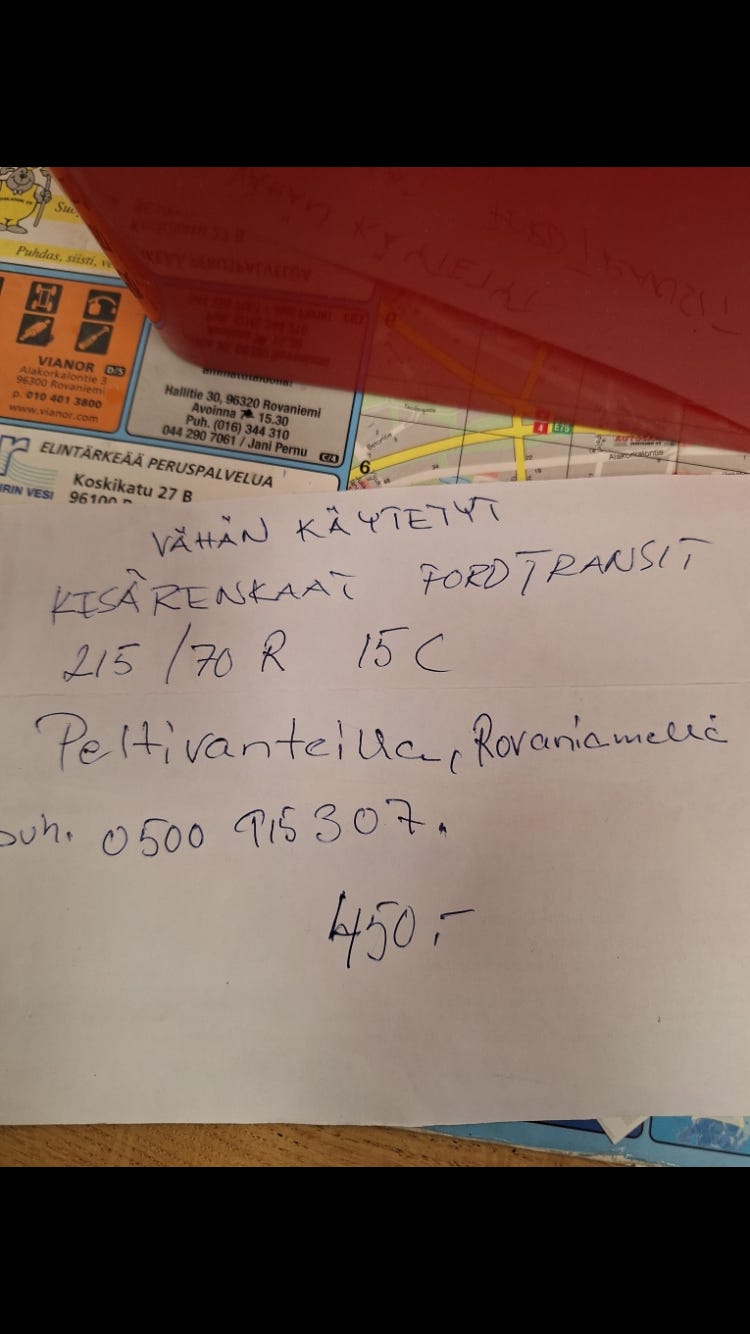 Puhdas, siisti,
VIANOR D/5
Alakorkalontie 3
96300 Rovaniemi
p. 010 401 3800
www.vianor.com
Hallitie 30, 96320 Rovaniemi
Avoinna 7- 15.30
Puh. (016) 344 310
044 290 7061 / Jani Pernu C/4
ELINTÄRKEÄÄ PERUSPALVELUA
Koskikatu 27 B
96100
IRIN VESI
6
4 E75
Alakorkalontie
VÄHÄN KÄYTETYT
KISÄRENKAAT FORD TRANSIT
215/70 R 15 C
Peltivanteilla, Rovaniemellä
puh. 0500 915307.
450,-